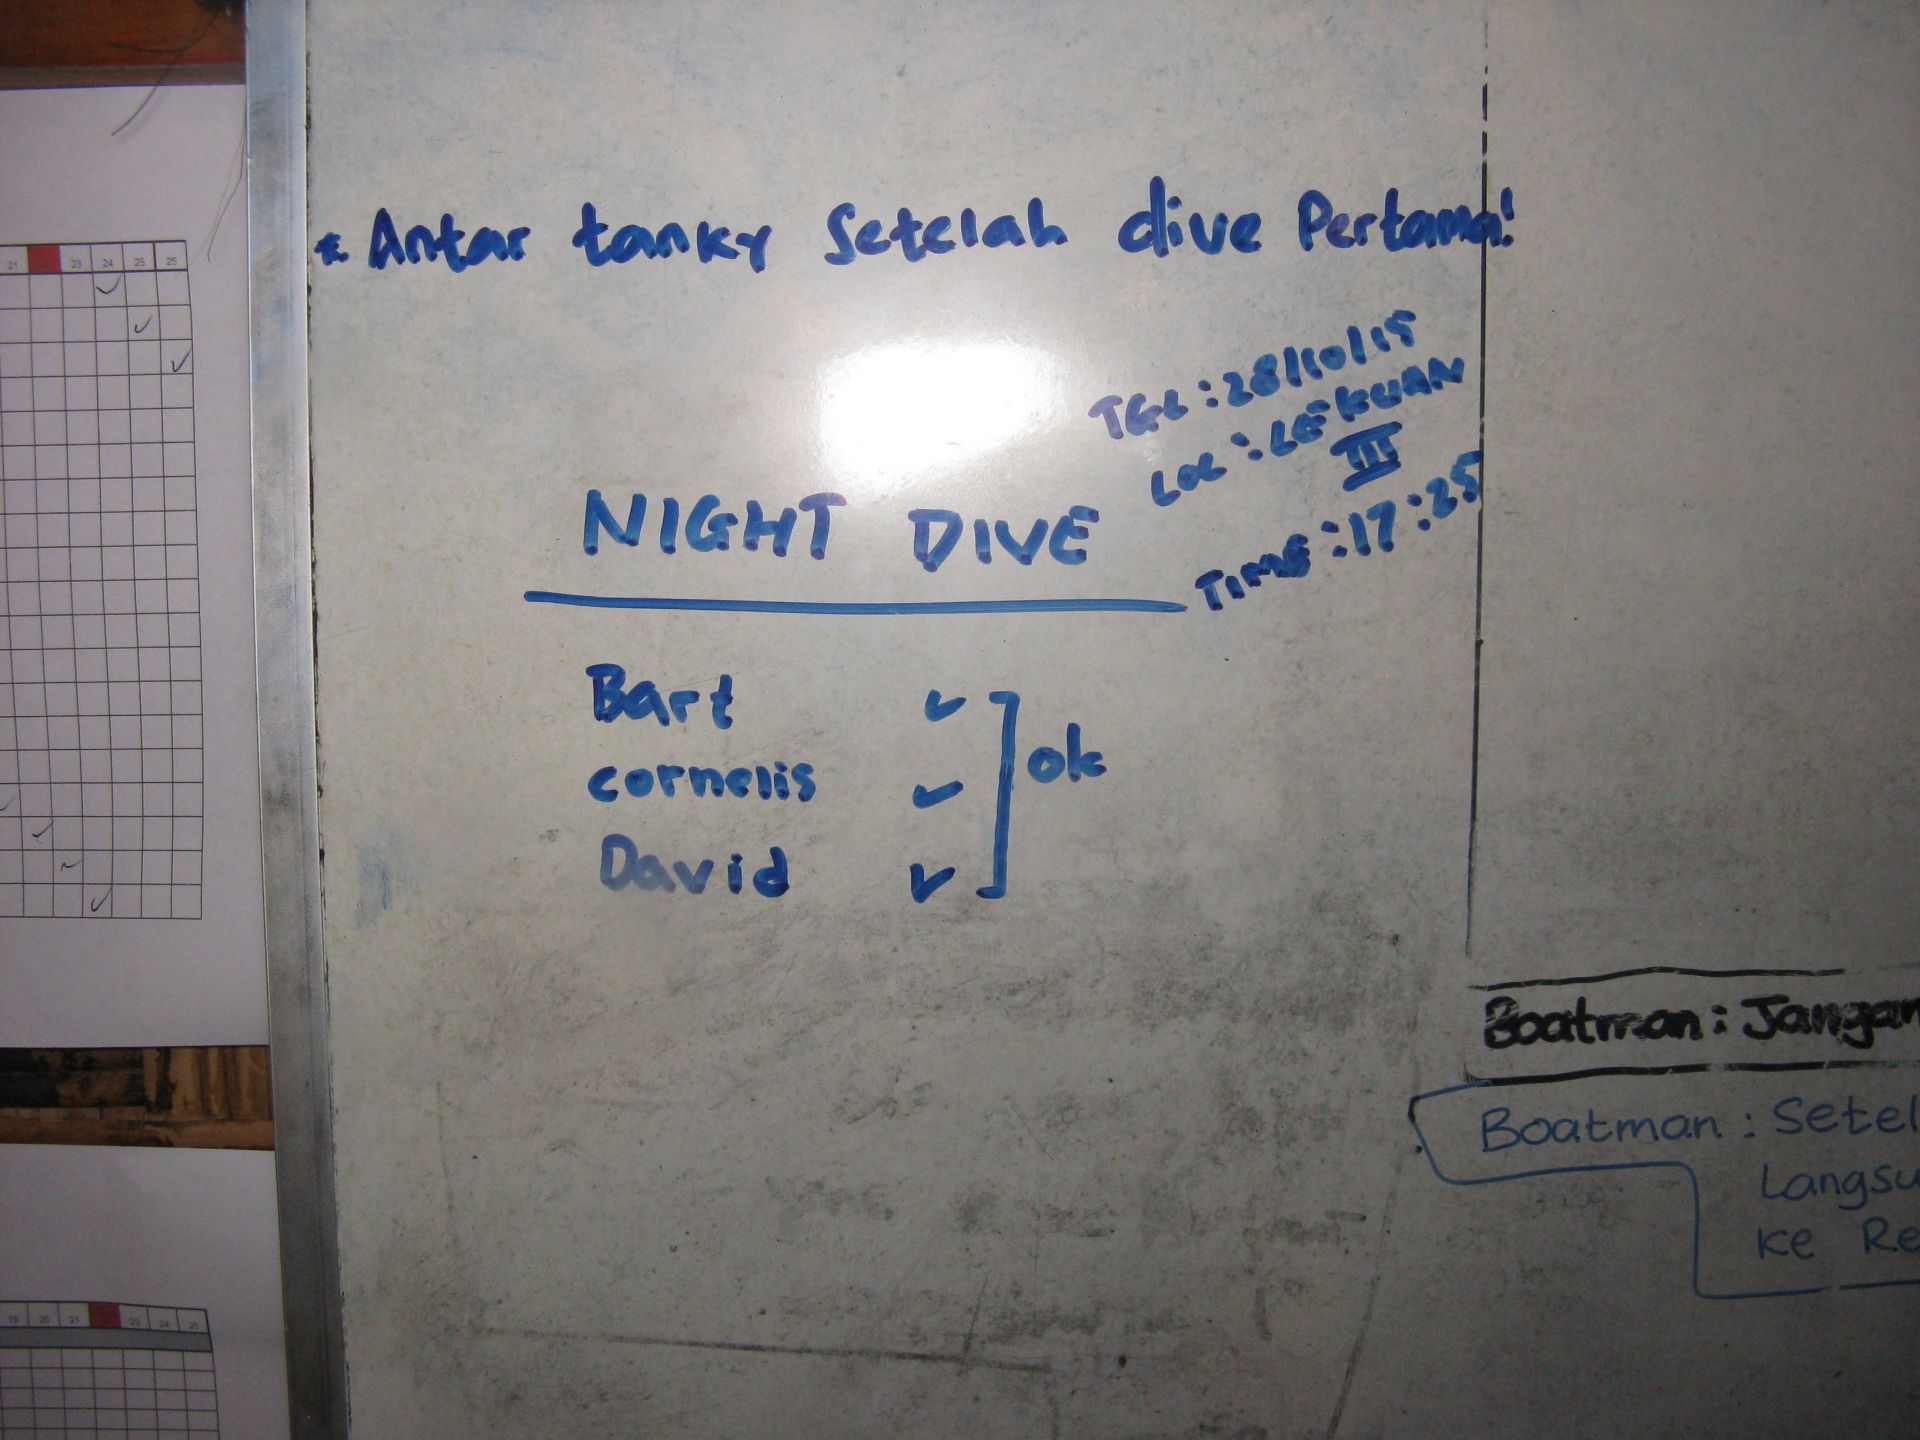 * Antar tanky Setelah dive Pertama!
TGL : 28/10/15
Loc : LEKUAN
III
TIME : 17:25
NIGHT DIVE
Bart ✓
cornelis ✓ ok
David ✓
Boatman : Jangan
Boatman : Setel
Langsu
Ke Re
21 23 24 25 25
19 20 21 23 24 25